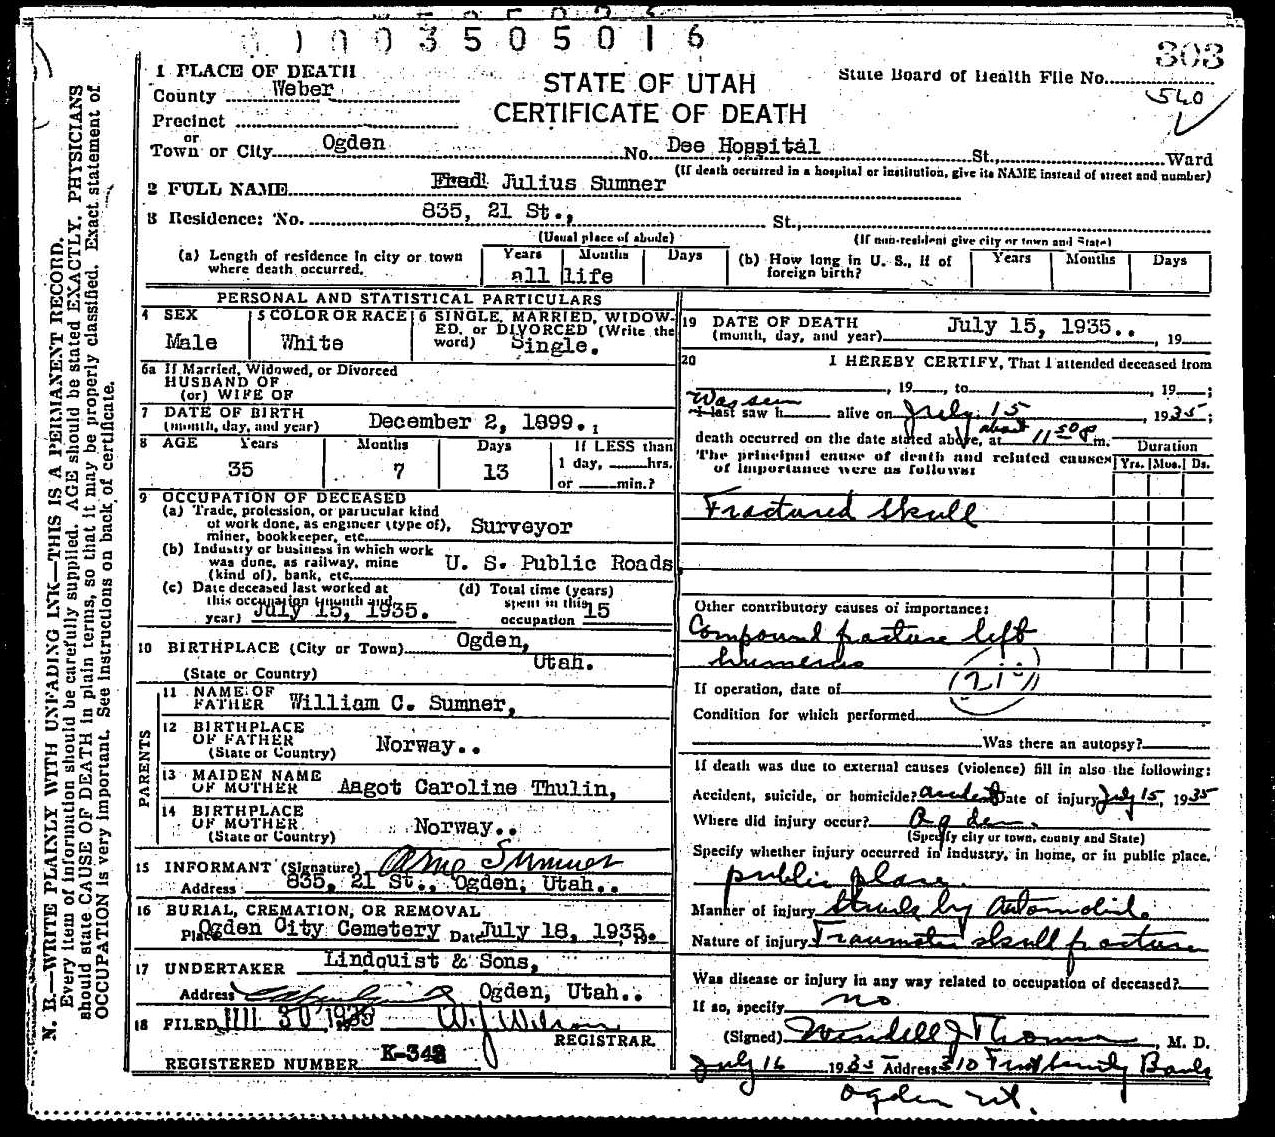 0 1 0 0 3 5 0 5 0 1 6
303
1 PLACE OF DEATH
STATE OF UTAH
State Board of Health File No.
County Weber
540
CERTIFICATE OF DEATH
Precinct
or
Town or City Ogden No. Dee Hospital St., Ward
(If death occurred in a hospital or institution, give its NAME instead of street and number)
2 FULL NAME Fred Julius Sumner
3 Residence: No. 835, 21 St., St.,
(Usual place of abode) (If non-resident give city or town and State)
(a) Length of residence in city or town where death occurred. Years Months Days all life
(b) How long in U. S., if of foreign birth? Years Months Days
PERSONAL AND STATISTICAL PARTICULARS
4 SEX Male
5 COLOR OR RACE White
6 SINGLE, MARRIED, WIDOWED, or DIVORCED (Write the word) Single.
6a If Married, Widowed, or Divorced
HUSBAND OF
(or) WIFE OF
7 DATE OF BIRTH December 2, 1899.
(month, day, and year)
8 AGE Years Months Days If LESS than
35 7 13 1 day, hrs.
or min.?
9 OCCUPATION OF DECEASED
(a) Trade, profession, or particular kind
of work done, as engineer (type of), Surveyor
miner, bookkeeper, etc.
(b) Industry or business in which work
was done, as railway, mine U. S. Public Roads
(kind of), bank, etc.
(c) Date deceased last worked at
this occupation (month and
year) July 15, 1935.
(d) Total time (years)
spent in this
occupation 15
10 BIRTHPLACE (City or Town) Ogden,
Utah.
(State or Country)
PARENTS
11 NAME OF
FATHER William C. Sumner,
12 BIRTHPLACE
OF FATHER Norway..
(State or Country)
13 MAIDEN NAME
OF MOTHER Aagot Caroline Thulin,
14 BIRTHPLACE
OF MOTHER Norway..
(State or Country)
15 INFORMANT (Signature) Sumner
Address 835, 21 St., Ogden, Utah..
16 BURIAL, CREMATION, OR REMOVAL
Place Ogden City Cemetery Date July 18, 1935.
17 UNDERTAKER Lindquist & Sons,
Address Ogden, Utah..
18 FILED JUL 30 1935 W. J. Wilson
REGISTRAR.
REGISTERED NUMBER K-343
19 DATE OF DEATH July 15, 1935..
(month, day, and year) , 19
20 I HEREBY CERTIFY, That I attended deceased from
, 19 , to 19 ;
Was seen
I last saw h alive on July 15, 1935;
death occurred on the date stated above, at about 11 50 p m.
The principal cause of death and related causes
of importance were as follows:
Duration
Yrs. Mos. Ds.
Fractured Skull
Other contributory causes of importance:
Compound fracture left
humerus
If operation, date of
Condition for which performed
Was there an autopsy?
If death was due to external causes (violence) fill in also the following:
Accident, suicide, or homicide? accident Date of injury July 15, 1935
Where did injury occur? Ogden.
(Specify city or town, county and State)
Specify whether injury occurred in industry, in home, or in public place.
public place.
Manner of injury Struck by Automobile.
Nature of injury Traumatic skull fracture
Was disease or injury in any way related to occupation of deceased?
If so, specify no
(Signed) Wendell J Thomson, M. D.
July 16 1935 Address 510 First Security Bank
Ogden Ut.
N. B.—WRITE PLAINLY WITH UNFADING INK—THIS IS A PERMANENT RECORD.
Every item of information should be carefully supplied. AGE should be stated EXACTLY. PHYSICIANS
should state CAUSE OF DEATH in plain terms, so that it may be properly classified. Exact statement of
OCCUPATION is very important. See instructions on back of certificate.